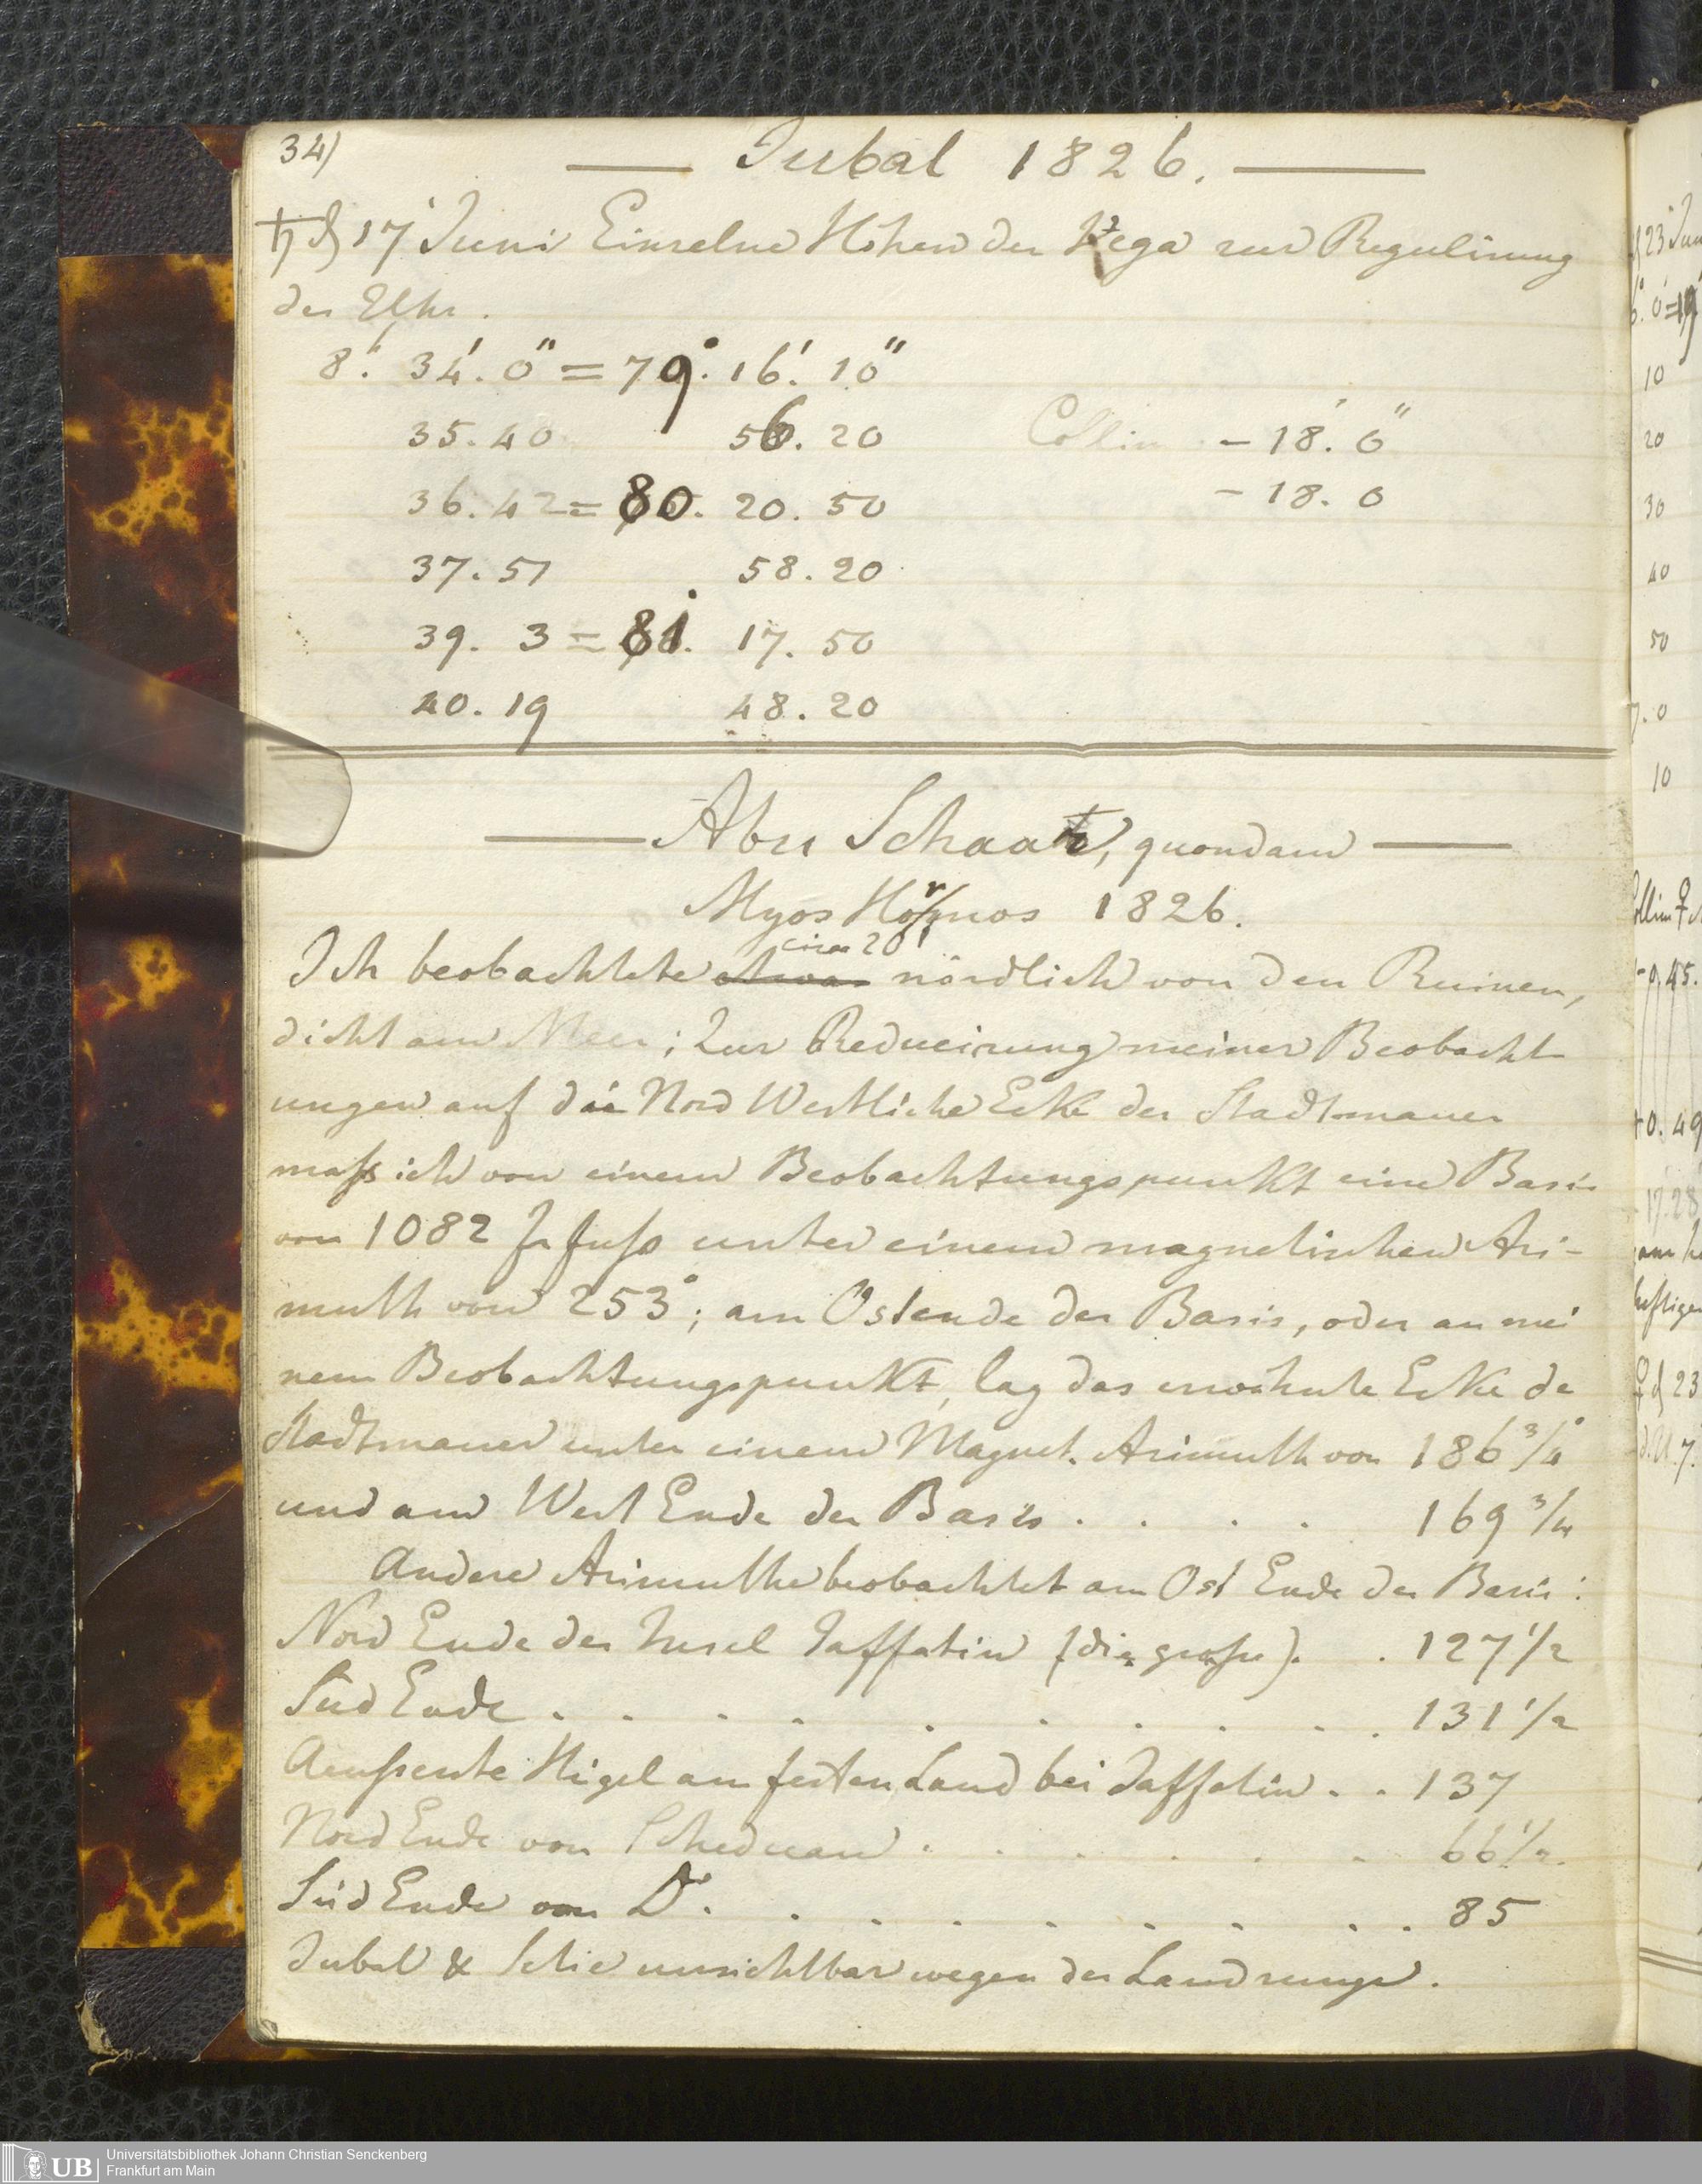 34)
Jubal 1826.
♄ d 17' Juni Einzelne Höhen der Wega zur Regulirung
der Uhr.
8. 34'. 0" = 79°. 16'. 10"
35. 40 56. 20 Collim - 18'. 0"
36. 42 = 80. 20. 50 - 18. 0
37. 51 58. 20
39. 3 = 81. 17. 50
40. 19 48. 20
Abu Schaar, quondam
Myos Hormos 1826.
circa 20'
Ich beobachtete etwa nördlich von den Ruinen,
dicht am Meer; Zur Reducirung meiner Beobacht
ungen auf die Nord Westliche Ecke der Stadtmauer
maß ich von einem Beobachtungspunkt eine Basis
von 1082 Fr fuß unter einem magnetischen Azi-
muth von 253°; am Ostende der Basis, oder an mei
nem Beobachtungspunkt, lag das erwähnte Ecke de
Stadtmauer unter einem Magnet. Azimuth von 186 3/4°
und am West Ende der Basis . . . . 169 3/4
Andere Azimuthe beobachtet am Ost Ende der Basis:
Nord Ende der Insel Jaffatin (die große). . 127 1/2
Süd Ende . . . . . . . . . . 131 1/2
Aeußerste Hügel am festen Land bei Jaffatin . . 137
Nord Ende von Scheduan . . . . . . 66 1/2.
Süd Ende von D°. . . . . . . . . . 85
Jubal & unsichtbar wegen der Landzunge.
23 Jun
6. 0' = 19
10
20
30
40
50
7. 0
10
Collim ♀
- 0. 45.
+ 0. 49
17. 28
♀ d 23
d. U. 7.
UB
Universitätsbibliothek Johann Christian Senckenberg
Frankfurt am Main